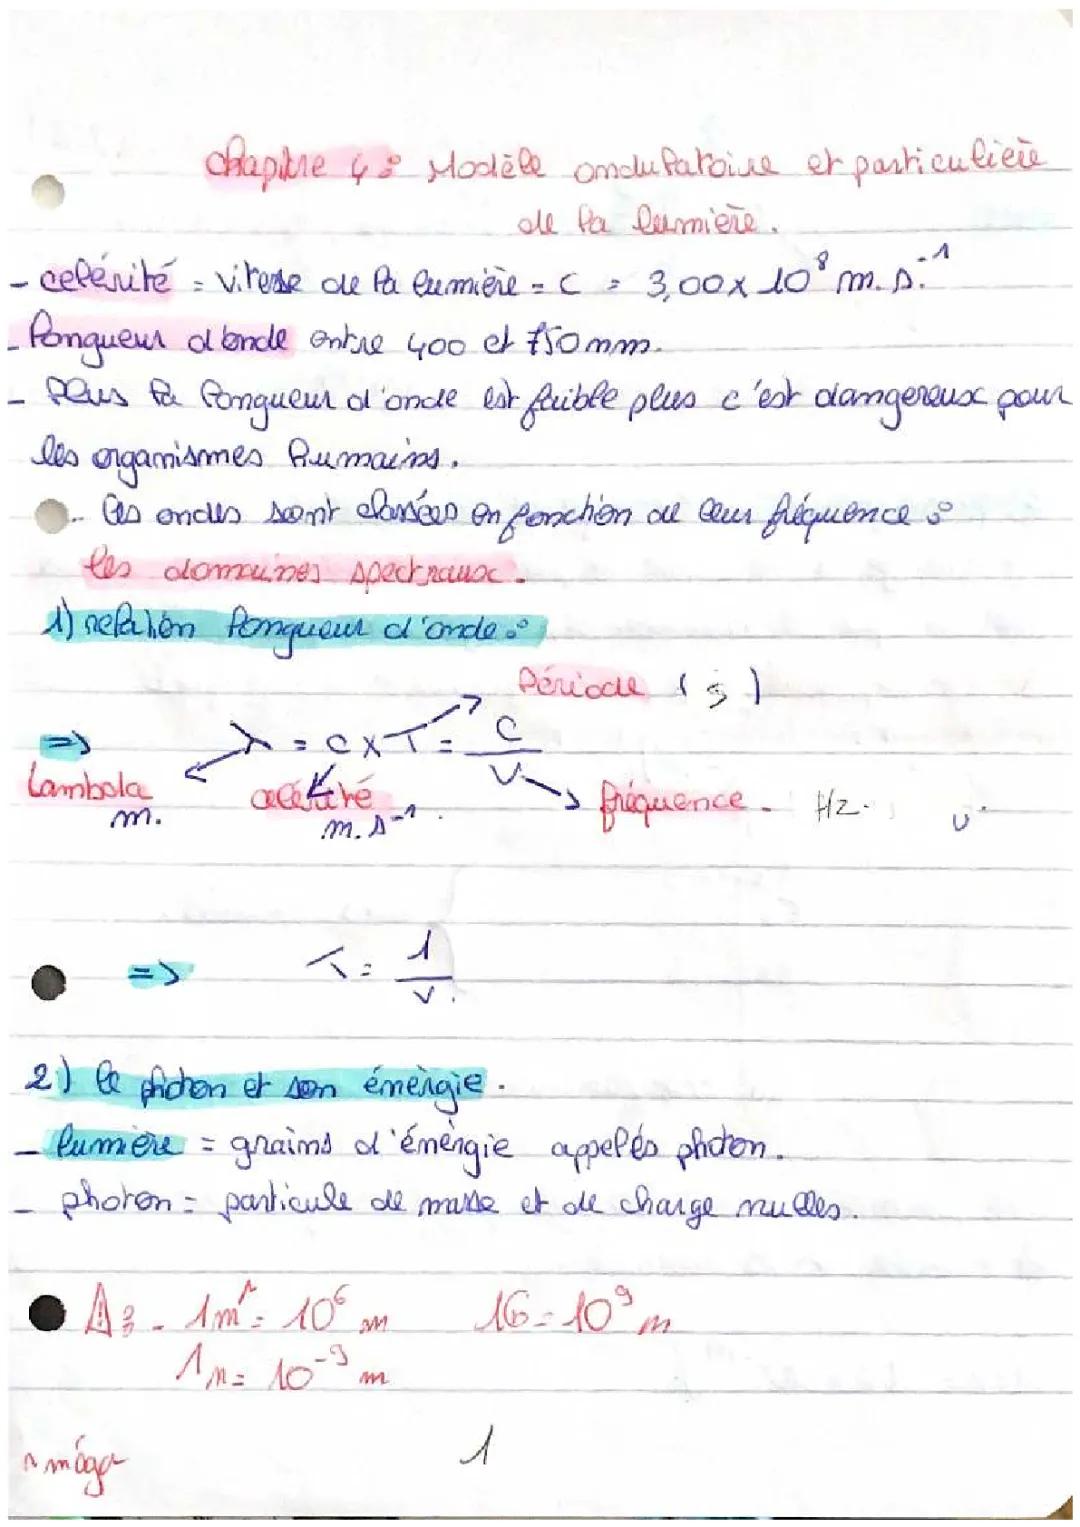 Chapitre 4 : Modèle ondulatoire et particulière
de la lumière.
- celérité = vitesse de la lumière = c = 3,00 x 10⁸ m.s.⁻¹
- longueur d'onde entre 400 et 750 nm.
- Plus la longueur d'onde est faible plus c'est dangereux pour
les organismes humains.
- les ondes sont classées en fonction de leur fréquence :
les domaines spectraux.
1) relation longueur d'onde :
Période (s)
=> λ = c x T = c/ν
Lambda célérité fréquence. Hz.
m. m.s⁻¹.
=> T = 1/ν.
2) le photon et son énérgie.
- lumière = grains d'énérgie appelés photon.
- photon = particule de masse et de charge nulles.
⚠ : - 1m^ = 10⁶ m 1G = 10⁹ m
1n = 10⁻⁹ m
^ méga
1